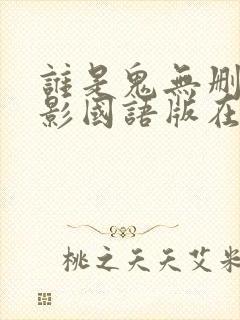 誰是鬼無刪
影國語版在
桃之夭夭艾米